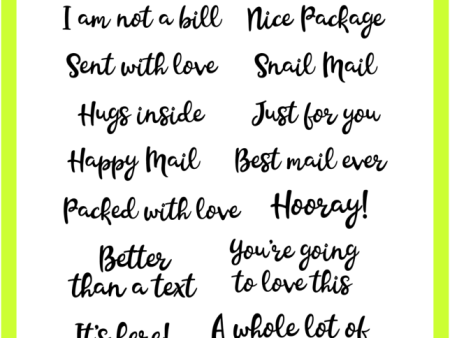 I am not a bill
Nice Package
Sent with love
Snail Mail
Hugs inside
Just for you
Happy Mail
Best mail ever
Packed with love
Hooray!
Better
than a text
You're going
to love this
It's here!
A whole lot of